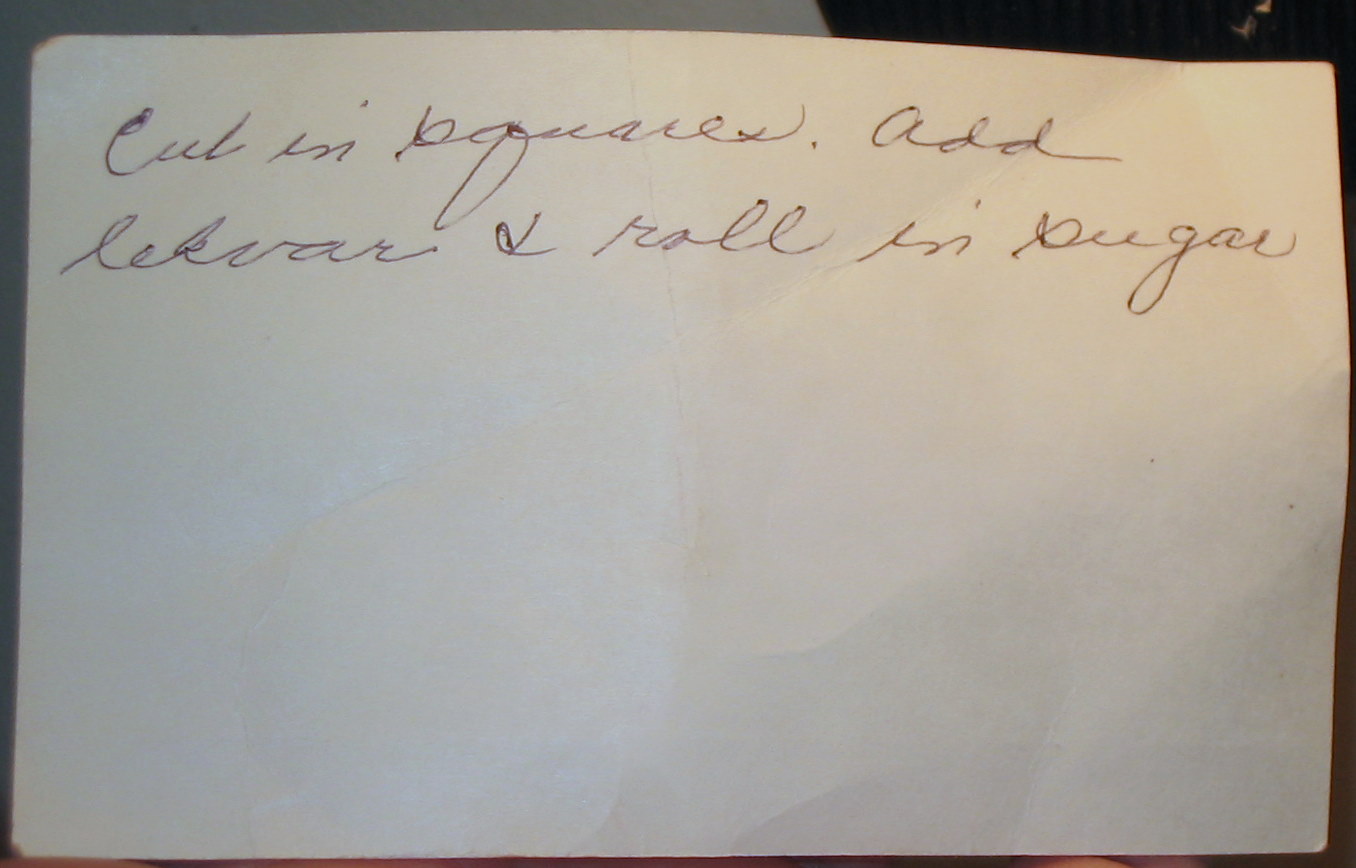 Cut in squares. Add
lekvar & roll in sugar